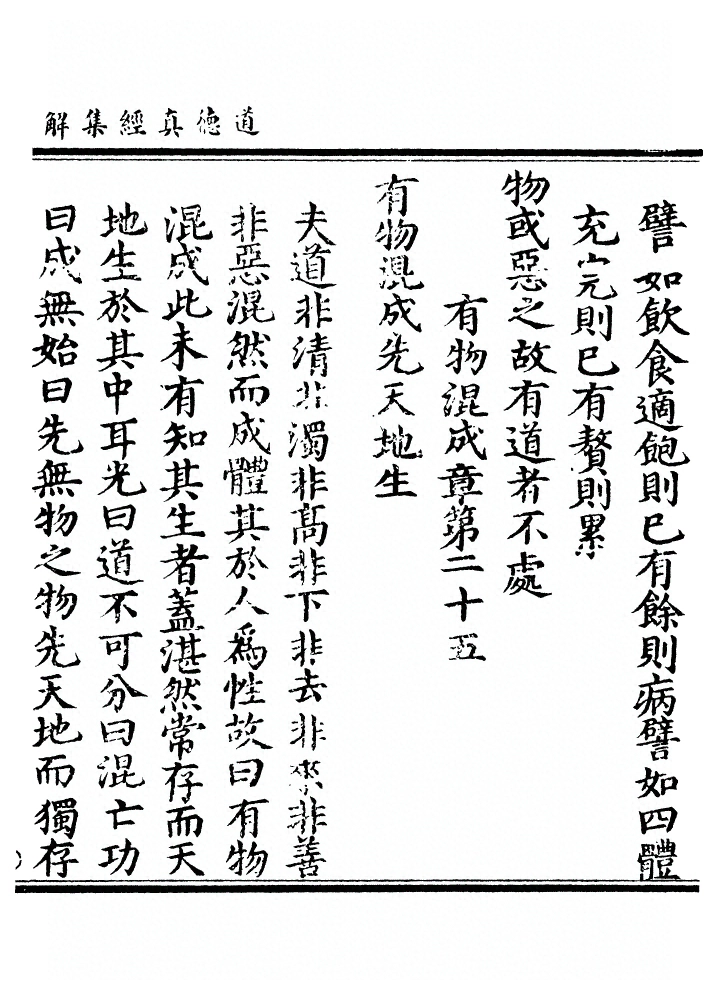 道德真經集解
譬如飲食適飽則已有餘則病譬如四體
充完則已有贅則累
物或惡之故有道者不處
有物混成章第二十五
有物混成先天地生
夫道非清非濁非髙非下非去非來非善
非惡混然而成體其於人爲性故曰有物
混成此未有知其生者蓋湛然常存而天
地生於其中耳光曰道不可分曰混亡功
曰成無始曰先無物之物先天地而獨存